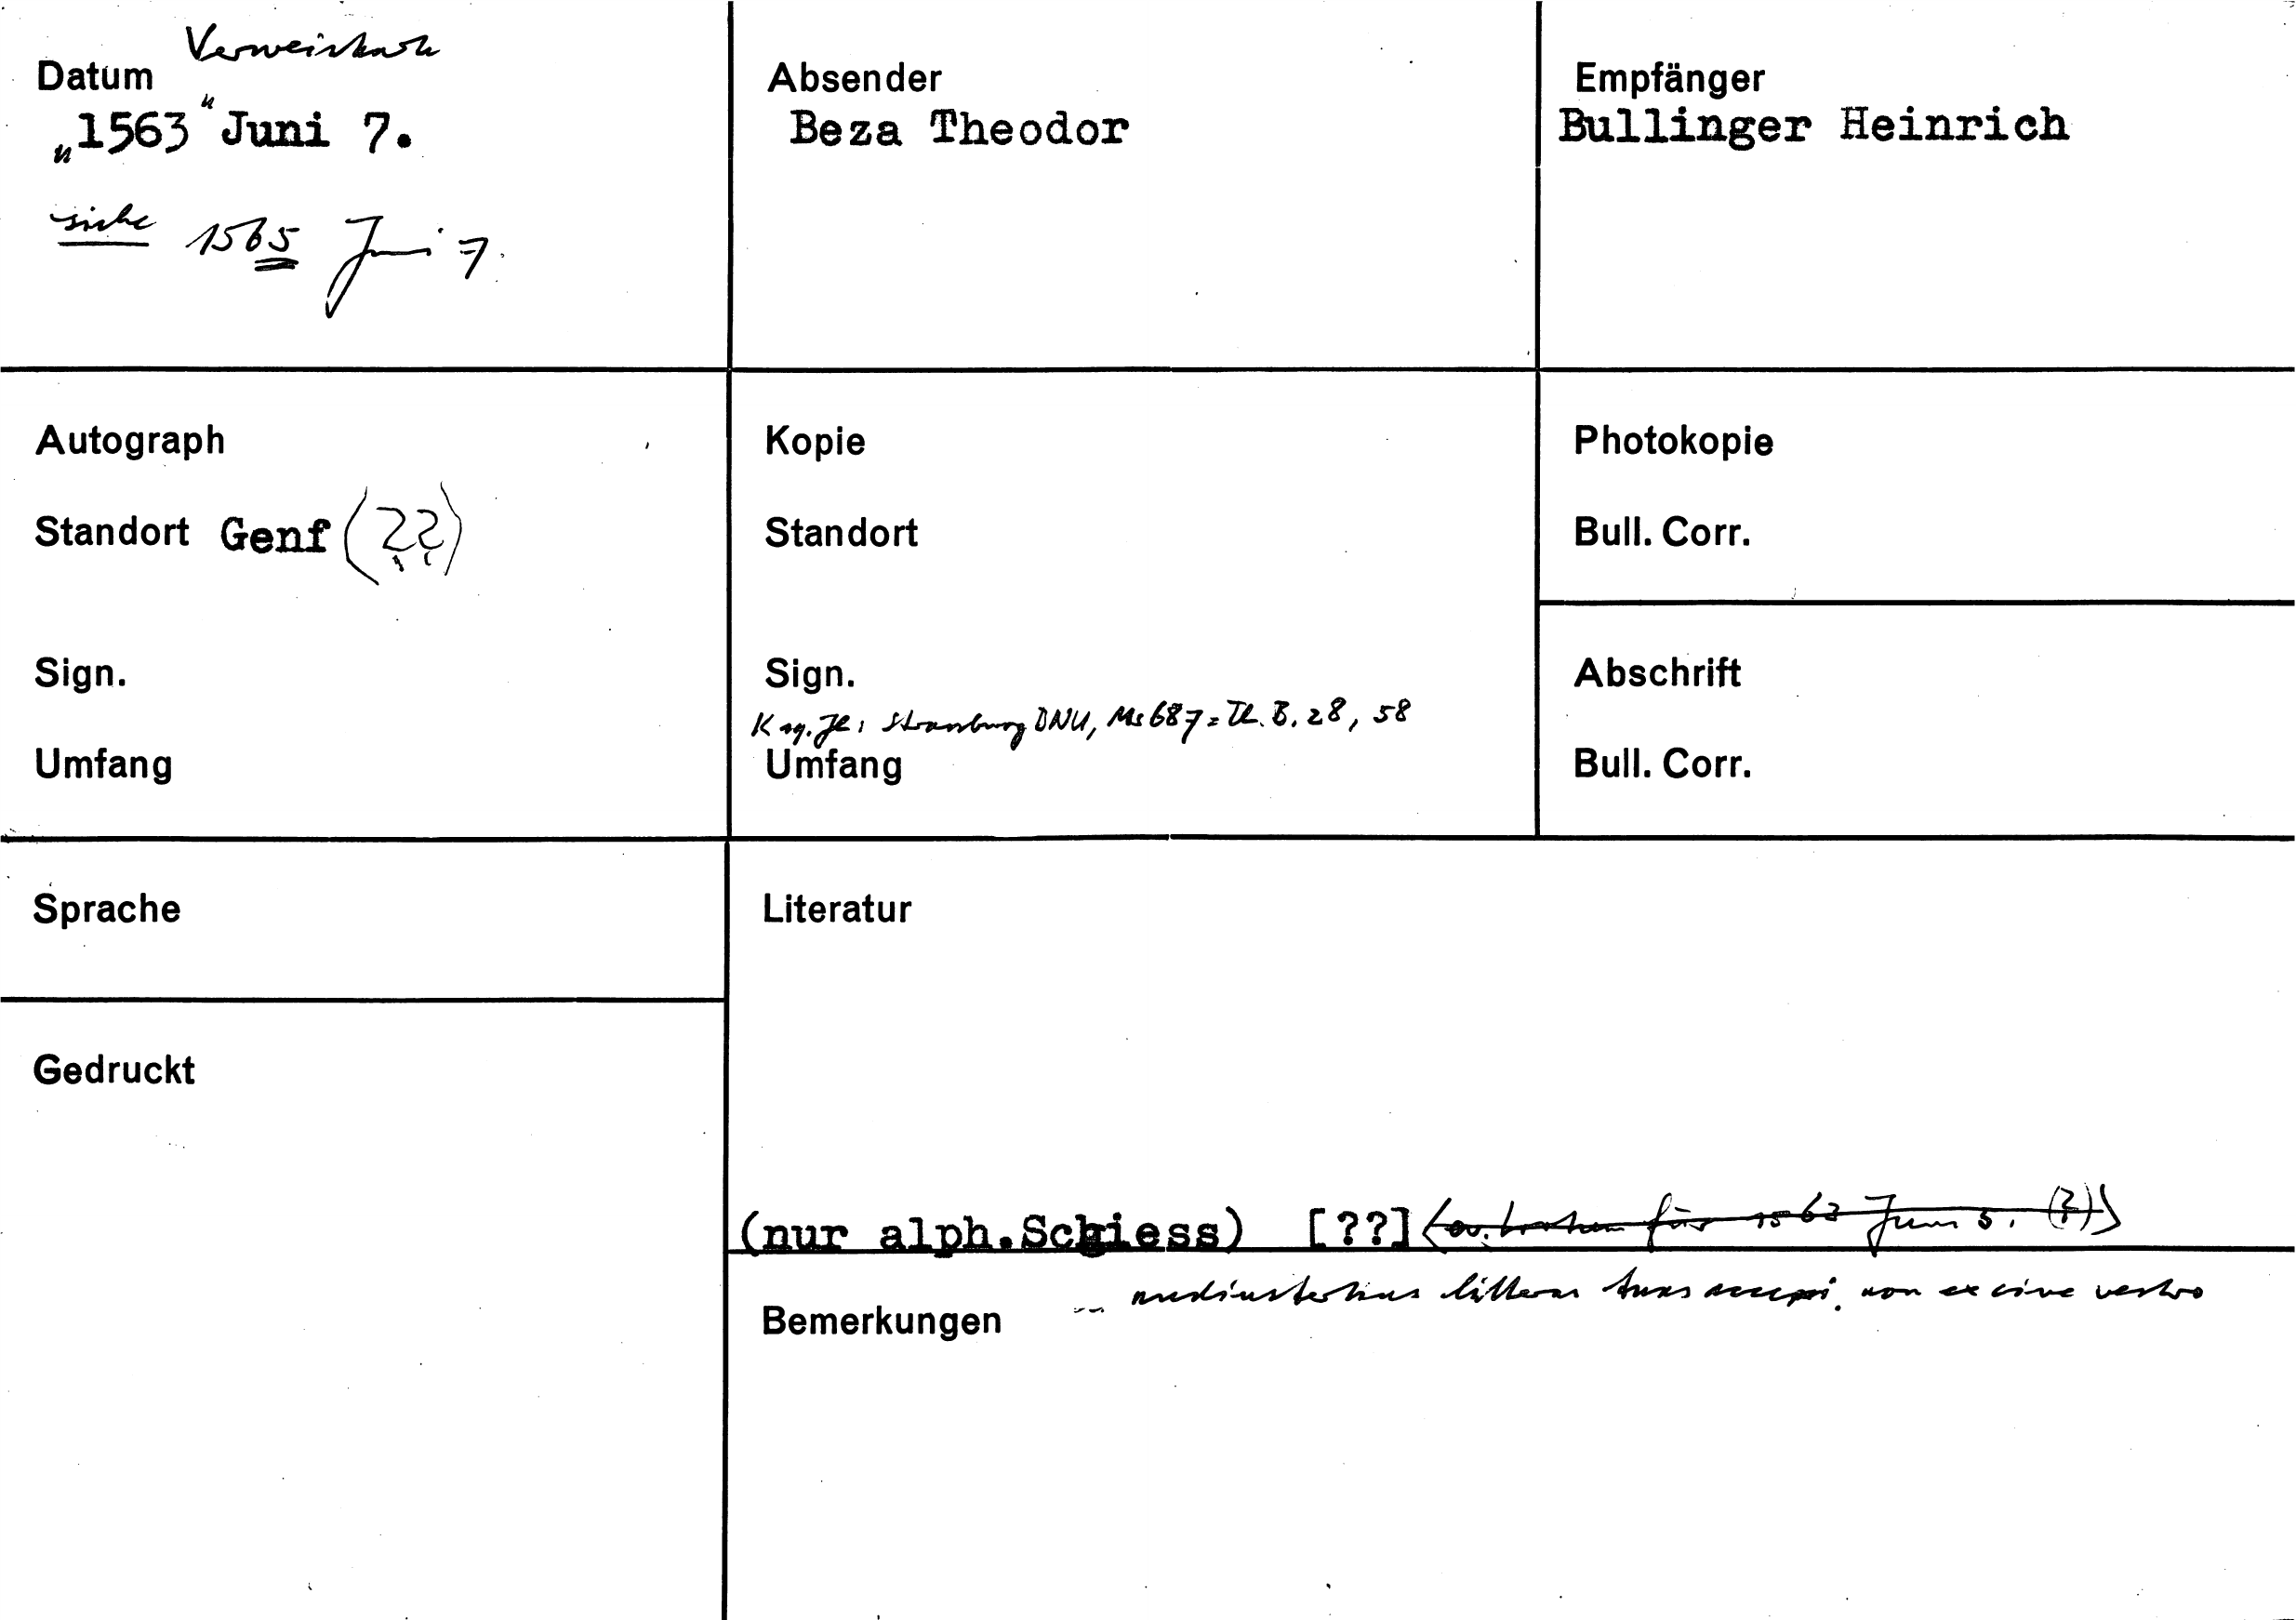 Verweiskarte
Datum
„1563“ Juni 7.
siehe 1565 Juni 7.
Absender
Beza Theodor
Empfänger
Bullinger Heinrich
Autograph
Standort Genf (??)
Sign.
Umfang
Kopie
Standort
Sign.
Strassburg BNU, Ms 687 = Th. B. 28, 58
Umfang
Photokopie
Bull. Corr.
Abschrift
Bull. Corr.
Sprache
Gedruckt
Literatur
(nur alph. Schiess) [??] (ev. irrtum für 1563 Juni 5. (?))
Bemerkungen
litteras tuas accepi, non ex cive vestro